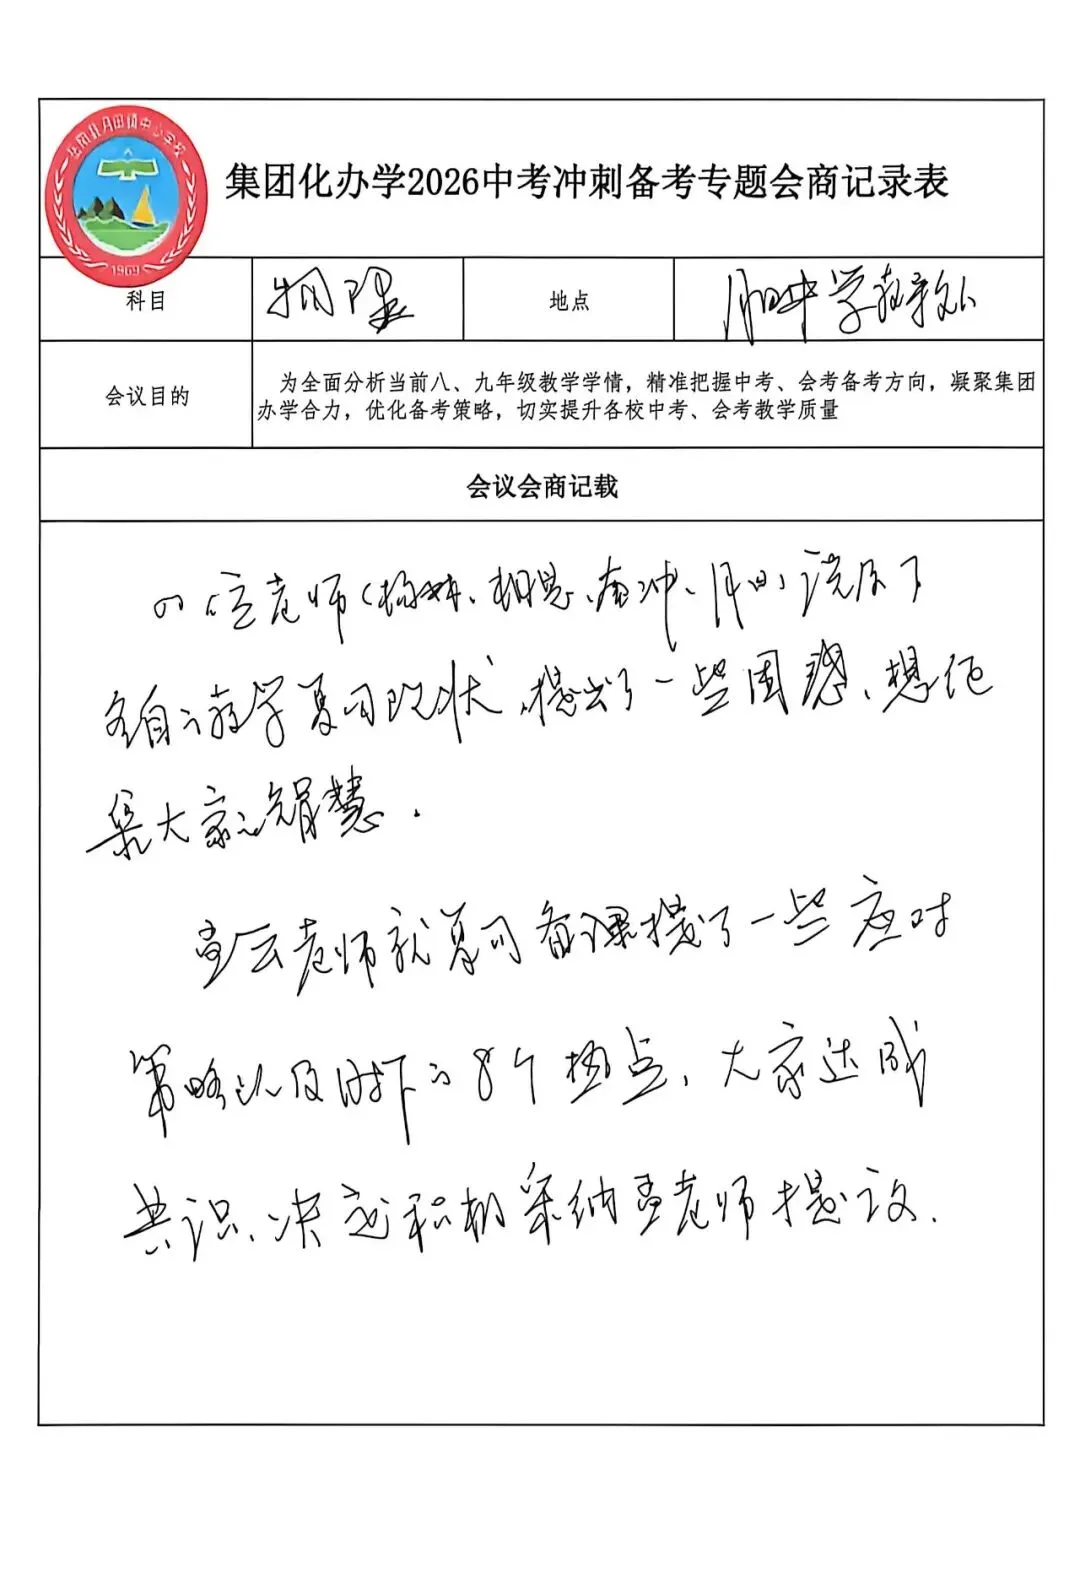 岳阳县月田镇中心学校
1969
集团化办学2026中考冲刺备考专题会商记录表
科目
地点 中学
会议目的 为全面分析当前八、九年级教学学情，精准把握中考、会考备考方向，凝聚集团
办学合力，优化备考策略，切实提升各校中考、会考教学质量
会议会商记载
四位老师（杨林、相思、 冲、月田）说及下
各自之教学复习现状，提出了一些困惑、想征
集大家之智慧.
老师就复习备课提了一些应对
策略以及时下之8个热点，大家达成
共识、决定积极采纳 老师提议.